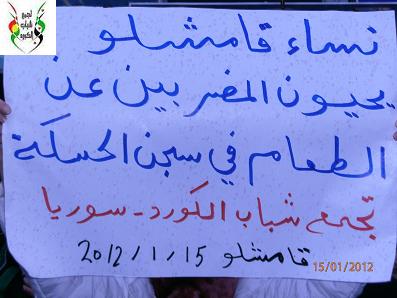 نساء قامشلو
يحيون المضربين عن
الطعام في سجن الحسكة
تجمع شباب الكورد - سوريا
قامشلو 2012/1/15
15/01/2012